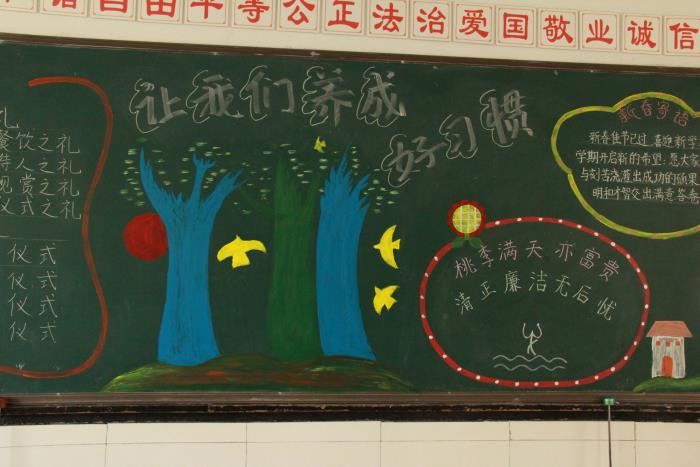 自由平等公正法治爱国敬业诚信
让我们养成
好习惯
礼
餐饮之礼
待人之礼
观赏之礼
仪式之礼
仪式
仪式
仪式
仪式
新春寄语
新春佳节已过,喜迎新学
学期开启新的希望;愿大家
与刻苦浇灌出成功的硕果
明和才智交出满意答卷
桃李满天亦富贵
清正廉洁无后忧